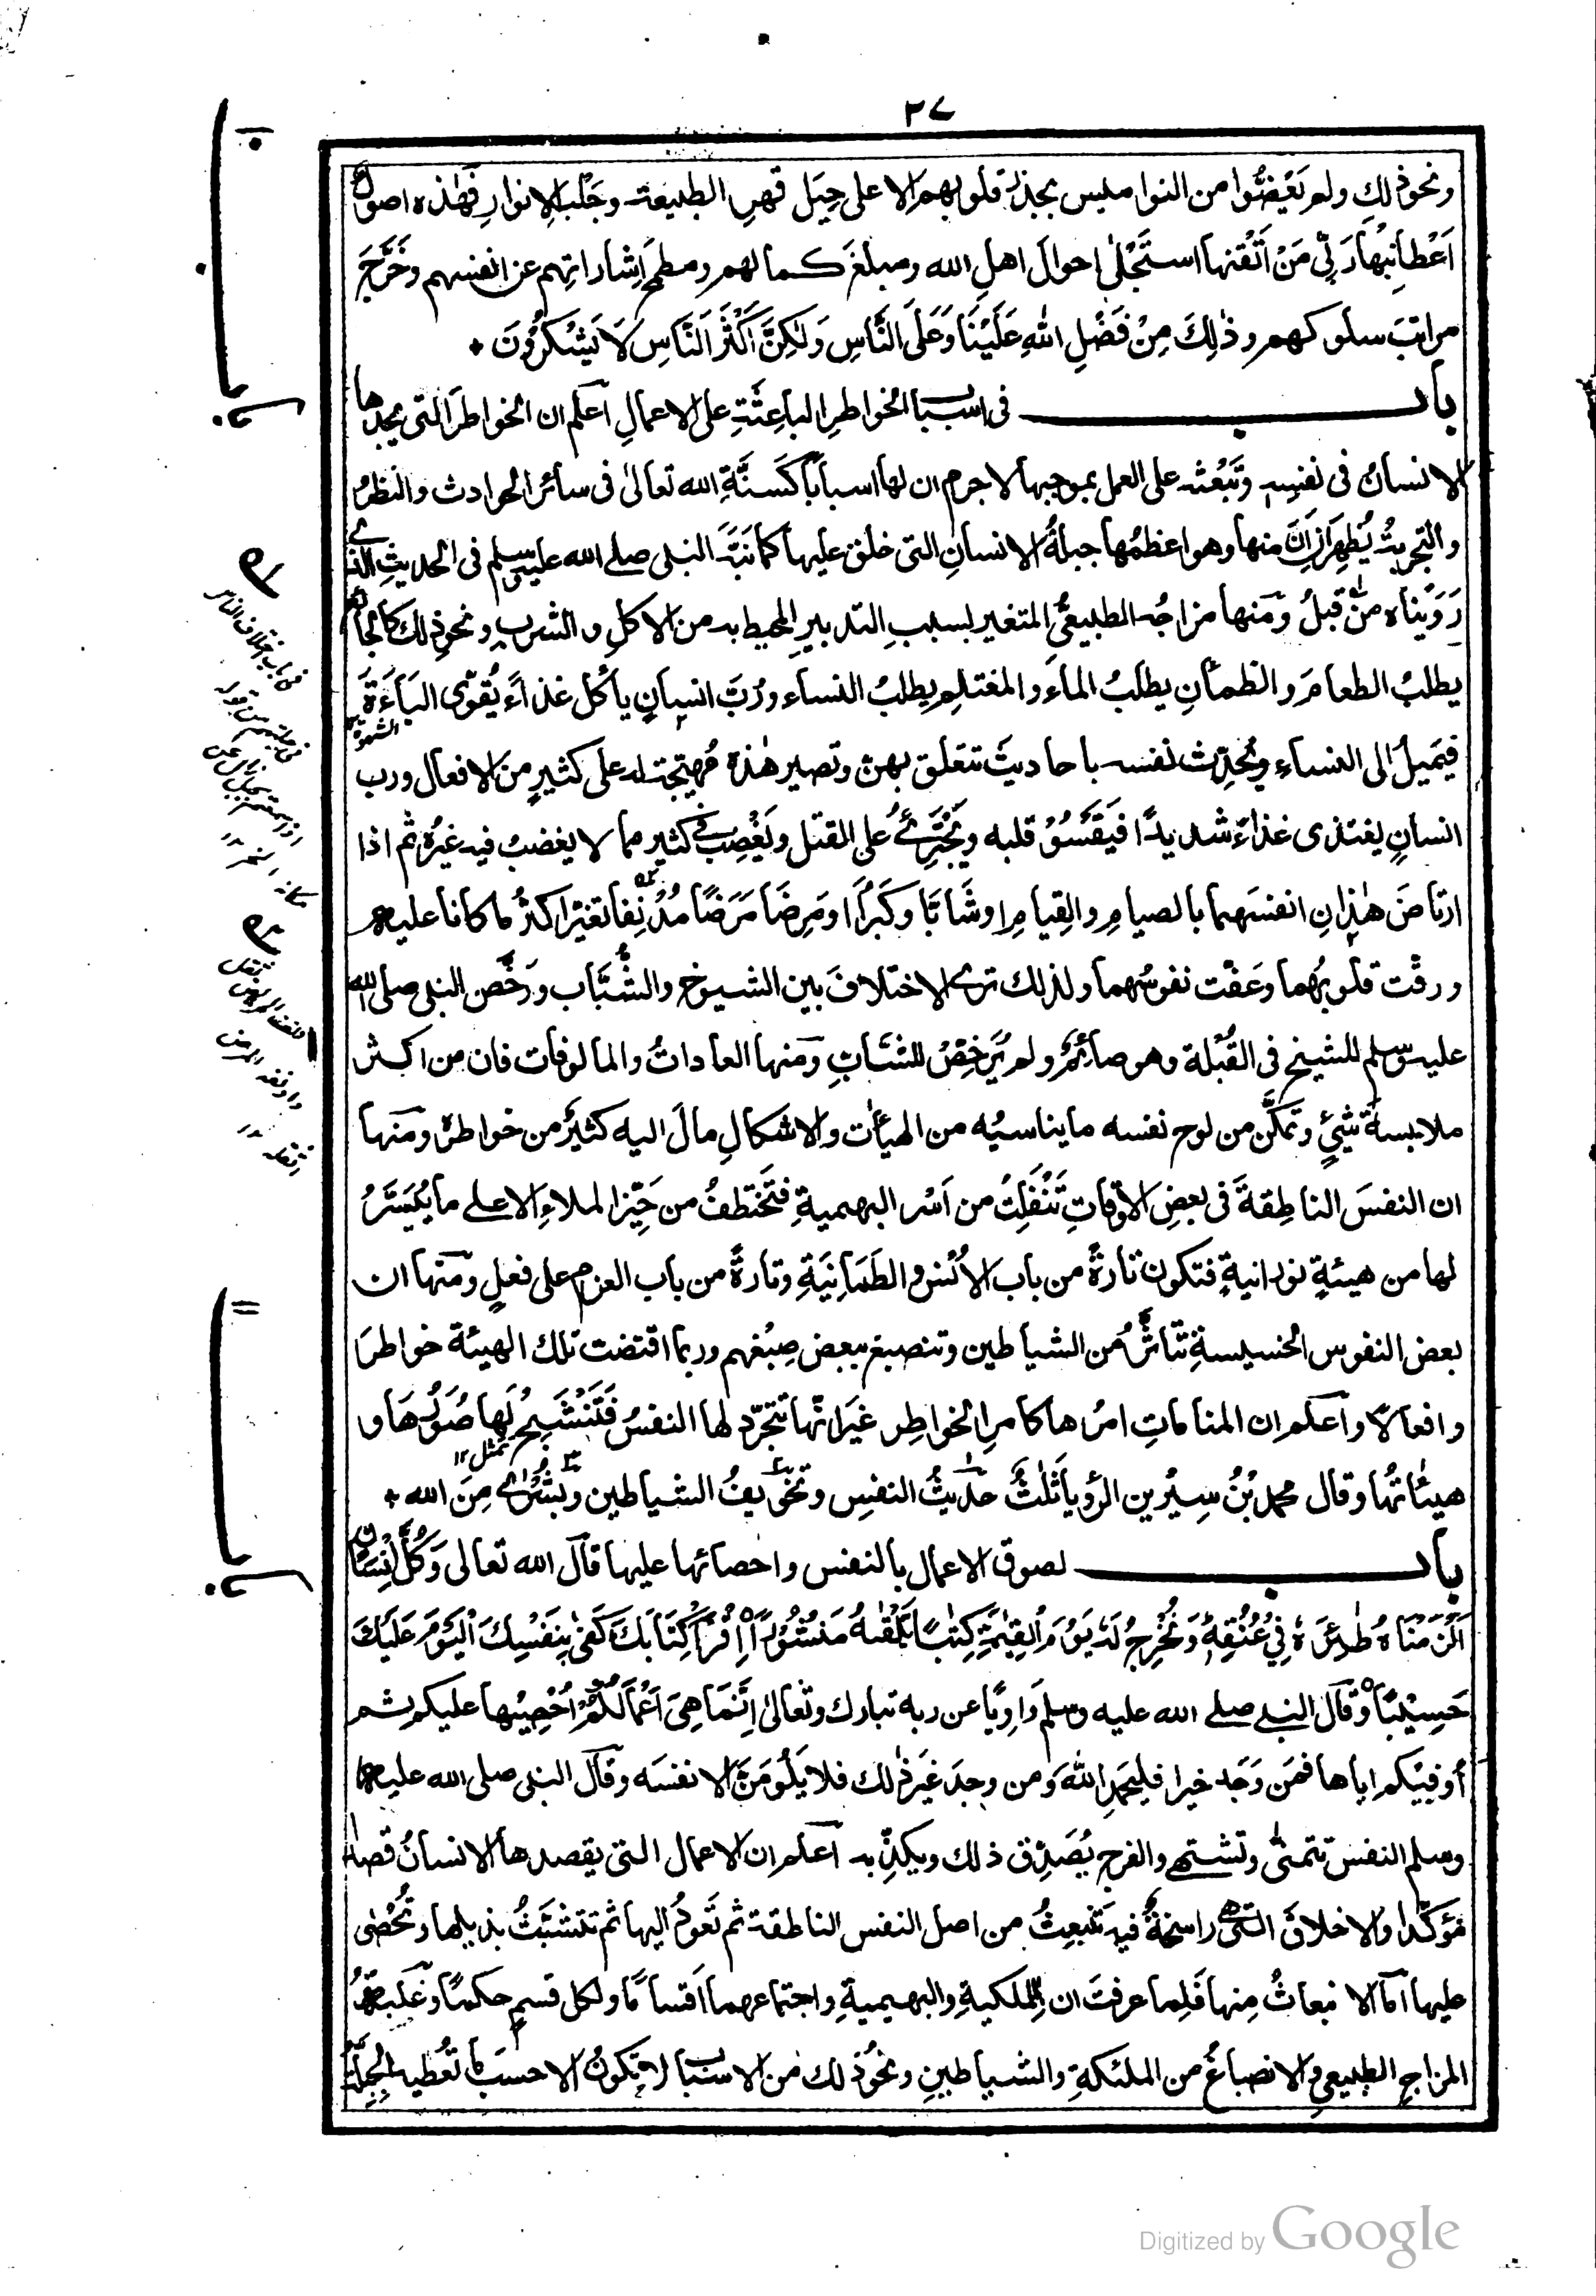 ٢٧
ونحو ذلك ولم يَعَضُّوا من النواميس بجذر قلوبهم الا على حِيَل قهرِ الطبيعة وجَلْب الانوار فهٰذه اصول
اَعْطانِيْها رَبِّى مَنْ اَتْقَنها استَجْلىٰ احوالَ اهلِ الله ومبلغَ كمالهم ومطمحَ اِشاراتِهم عن انفسهم وخَرَّجَ
مراتبَ سلوكهم وذٰلِكَ مِنْ فَضْلِ اللهِ عَلَيْنَا وَعَلَى النَّاسِ وَلٰكِنَّ اَكْثَرَ النَّاسِ لَا يَشْكُرُوْنَ ✦
باب في اسباب الخواطرِ الباعِثَةِ على الاعمالِ اعلم ان الخواطرَ التى يجدها
الانسانُ فى نفسِه وتَبْعُثه على العمل بموجبها لا جرم ان لها اسبابًا كَسنَّةِ الله تعالىٰ فى سائر الحوادث والنظرُ
والتجربةُ يُظهِرانِ اَنَّ منها وهو اعظمُها جبلةُ الانسانِ التى خلق عليها كما نَبَّهَ النبى صلے الله عليه وسلم فى الحديثِ الذى
رَوَيْناه من قبلُ ومنها مزاجُه الطبيعىُّ المتغير بسببِ التدبيرِ المحيط به من الاكل والشرب ونحوِ ذلك كالجائع
يطلبُ الطعامَ والظمأنِ يطلبُ الماءَ والمغتلمِ يطلبُ النساء ورُبَّ انسانٍ يأكُل غذاءً يُقوِّى البَاءَةَ
الشهوة
فيَميلُ الى النساءِ ويُحدِّث نفسه باحاديثَ تتعلق بهن وتصير هٰذه مُهيّجة له على كثيرٍ من الافعال ورب
انسانٍ يغتذى غذاءً شديدًا فيَقْسُوْ قلبه ويَجْتَرِئُ على القتل ويَغْضِبُ فى كثير مما لا يغضبُ فيه غيرُه ثم اذا
ارتاضَ هٰذانِ انفسَهما بالصيامِ والقِيامِ او شَابَّا وكَبُرَا او مَرِضَا مَرَضًا مُدْنِفا تغيّرا كثرُ ما كانا عليه
ورقّت قلوبُهما وعَفَّت نفوسُهما ولذلك ترى الاختلافَ بين الشيوخ والشُّبَّاب ورَخَّص النبى صلى الله
عليه وسلم للشيخ فى القُبْلة وهو صائِمٌ ولم يُرَخِّصْ للشَّابِّ ومنها العاداتُ والمالوفات فان من اكثر
ملابسةَ شيْئٍ وتمكَّن من لوح نفسه ما يناسبُه من الهيأت والاشكالِ مالَ اليه كثيرٌ من خواطره ومنها
ان النفسَ الناطِقةَ فى بعضِ الاَوْقاتِ تَنْفَلِتُ من اَسْر البهيميةِ فتَخْتَطفُ من حَيِّز الملاءِ الاعلے ما يُيَسَّرُ
لها من هيئةٍ نورانيةٍ فتكون تارةً من باب الاُنْس والطَمَانِيَةِ وتارةً من باب العزم على فعلٍ ومنها ان
بعض النفوس الخسيسةِ تَتاثّرُ من الشياطين وتنصبغ ببعض صِبْغهم وربما اقتضت تلك الهيئة خواطرَ
وافعالًا واعلم ان المناماتِ امرُها كامرِ الخواطرِ غيرَ انّها تتجرّد لها النفسُ فَتَتَشَبَّحُ لها صُوَرُها و
تمثل ١٢
هيئاتُها وقال محمد بنُ سِيْرين الرؤيا ثَلٰثٌ حديثُ النفسِ وتخويفُ الشياطين وبُشْرٰى مِنَ الله ✦
باب لصوق الاعمال بالنفس واحصائها عليها قال الله تعالى وَكُلَّ اِنْسَانٍ
اَلْزَمْنَاهُ طٰٓئِرَهٗ فِىْ عُنُقِهٖ وَنُخْرِجُ لَهٗ يَوْمَ الْقِيٰمَةِ كِتٰبًا يَّلْقٰىهُ مَنْشُوْرًا اِقْرَأْ كِتَابَكَ كَفٰى بِنَفْسِكَ الْيَوْمَ عَلَيْكَ
حَسِيْبًا وقال النبے صلے الله عليه وسلم رَاوِيًا عن ربه تبارك وتعالىٰ اِنَّمَا هِىَ اَعْمَالُكُمْ اُحْصِيْها عليكم ثم
اُوفيكم اياها فمَن وَجَد خيرا فليحمدِ اللهَ ومن وجدَ غيرَ ذٰلك فلا يَلُومَنَّ الا نفسَه وقال النبى صلى الله عليه
وسلم النفس تتمنّى وتشتهى والفرج يُصَدِّق ذلك ويكذّبه اعلم ان الاعمال التى يقصدها الانسانُ قصدًا
مؤكَّدا والاخلاقَ التى هى راسخةٌ فيه تَنْبعِثُ من اصل النفس الناطقة ثم تَعودُ اليها ثم تتشبَّثُ بذيلها وتُحْصٰى
عليها امّا الانبعاثُ مِنها فَلِما عرفتَ ان للملكيةِ والبهيميةِ واجتماعهما اَقسامًا ولكل قسمٍ حكمًا وغَلَبةُ
المزاجِ الطبيعىِ والانصباغُ من الملئكةِ والشياطينِ ونحوُ ذلك من الاسباب لا تكونُ الا حسبَ ما تُعطيه الجبلةُ